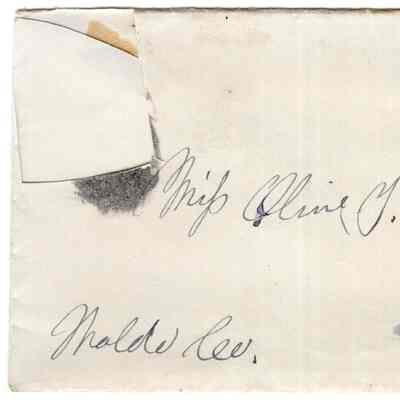 Miss Olive Y.
Waldo Co.